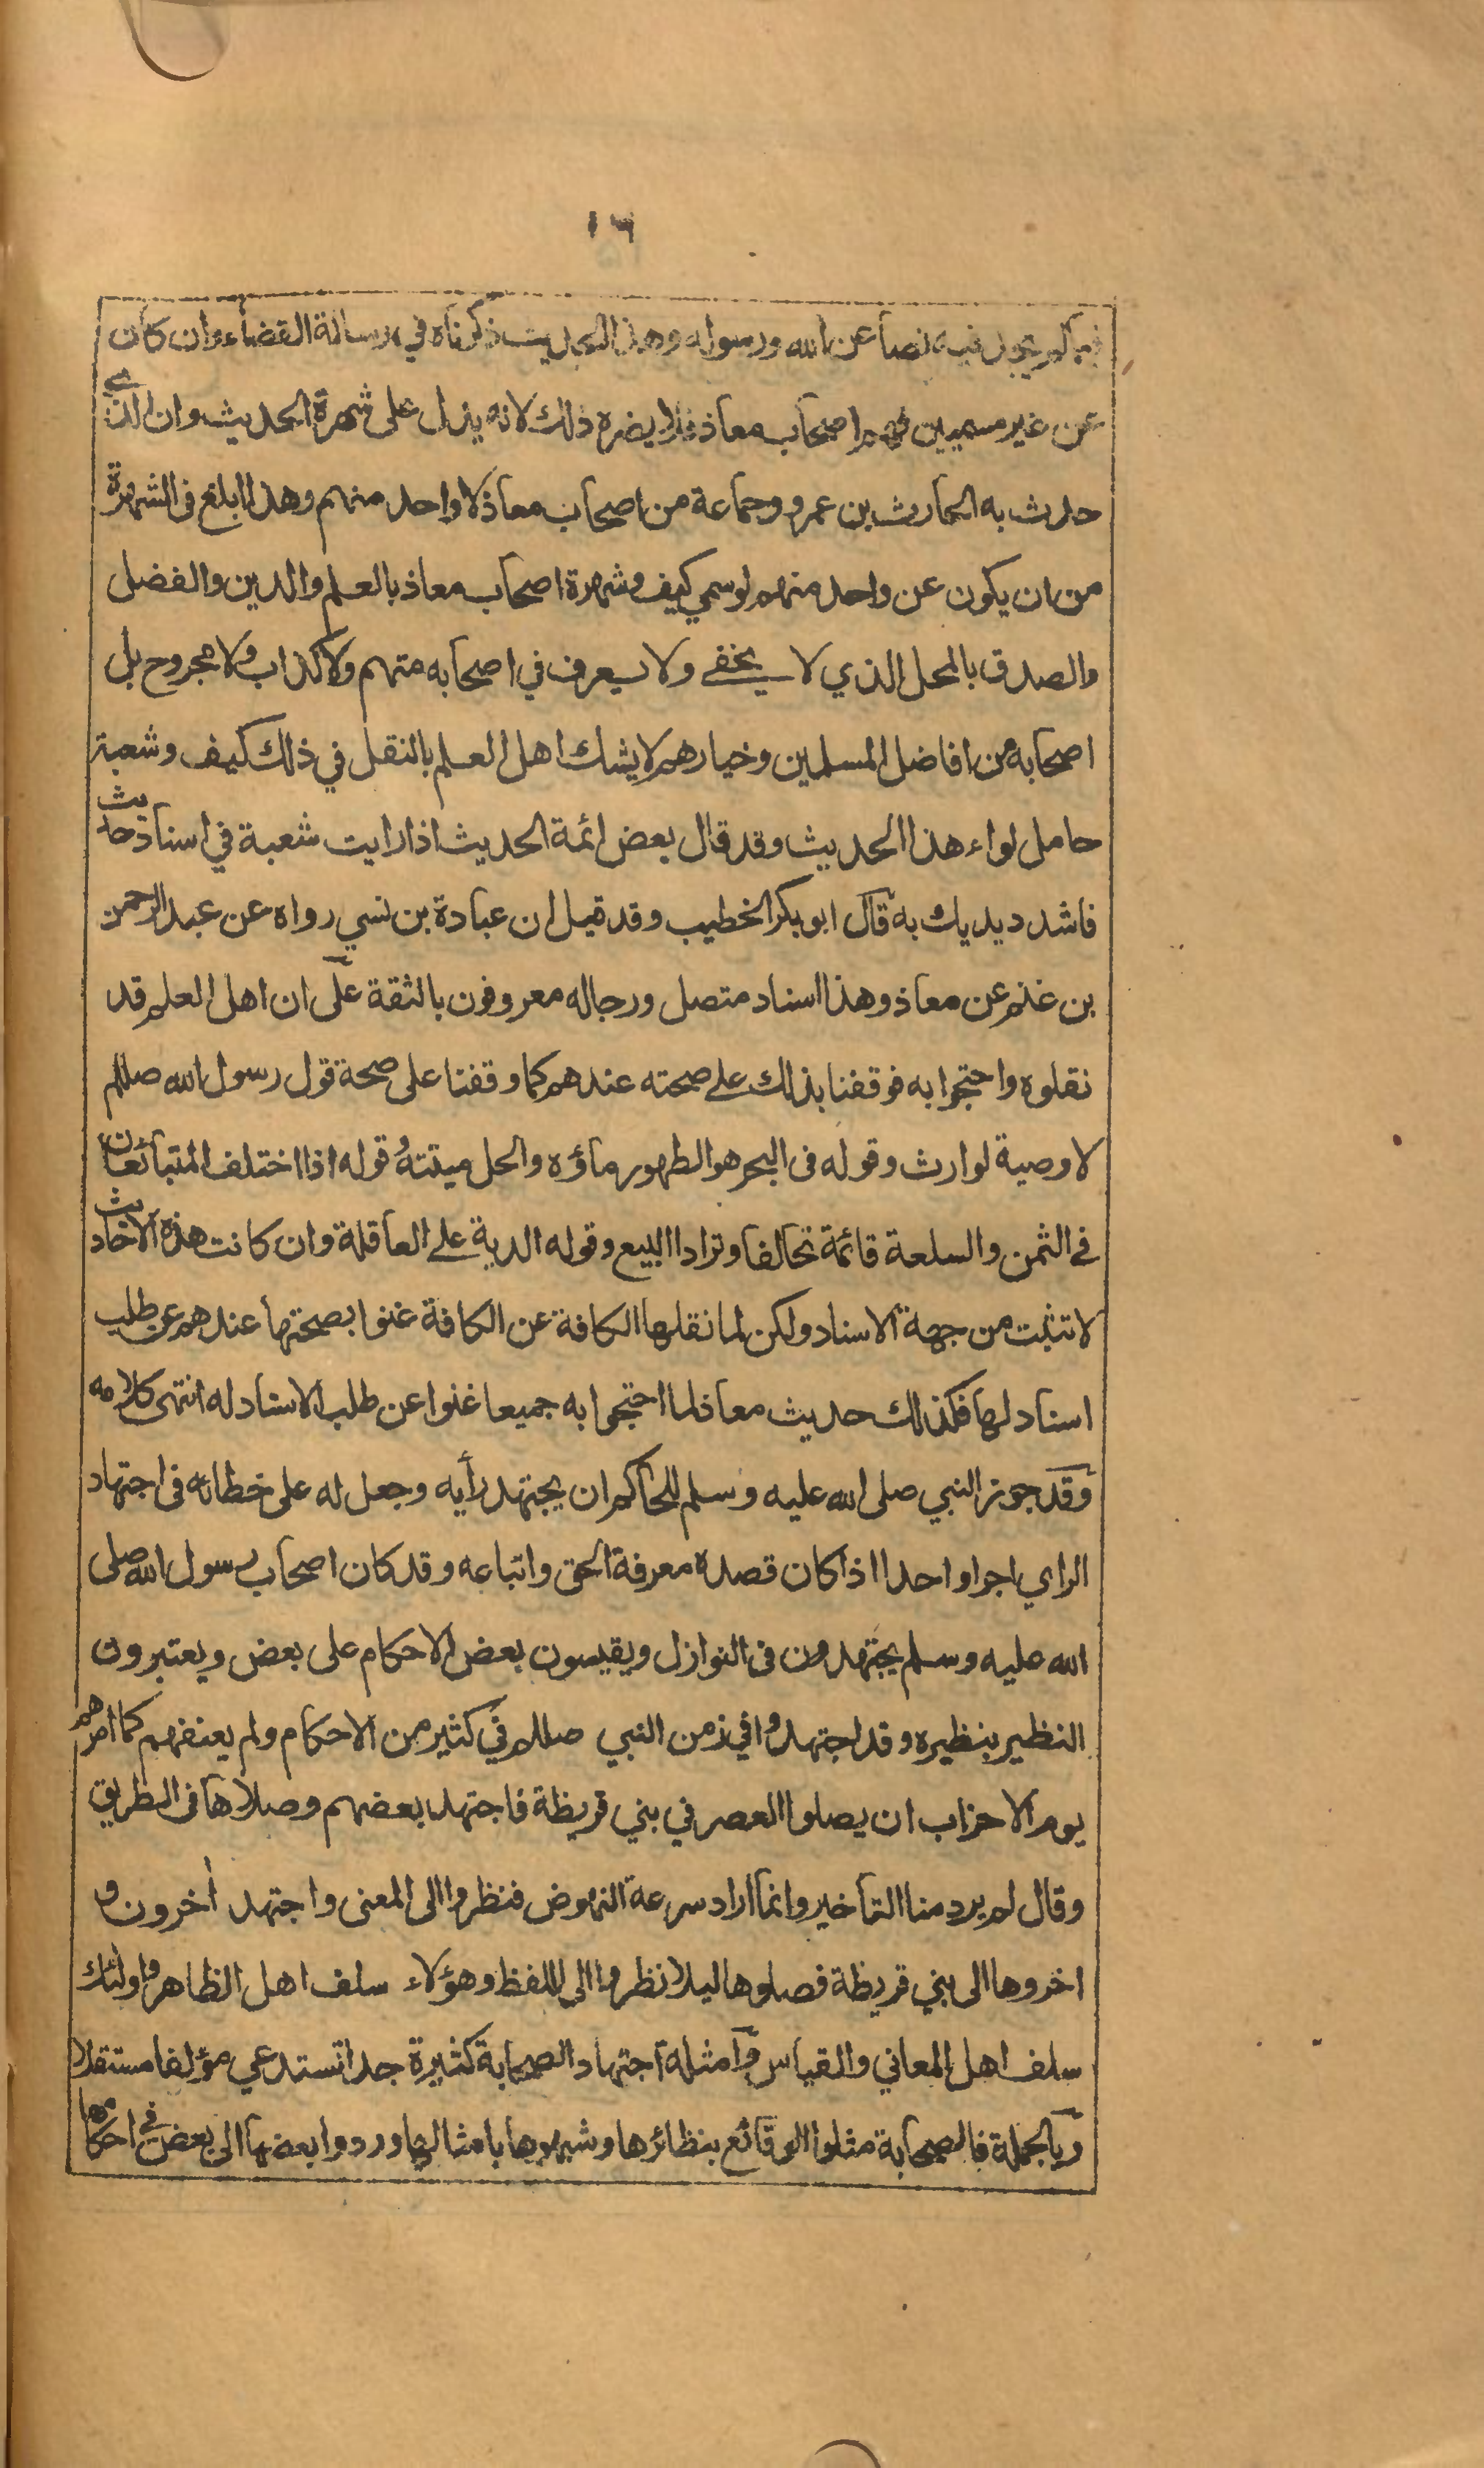 ١٦
فيما لم يجد فيه نصا عن الله ورسوله وهذا الحديث ذكرناه في رسالة القضاء وان كان
عن غير مسميين فهم اصحاب معاذ فلا يضره ذلك لانه يدل على شهرة الحديث وان الذي
حدث به الحارث بن عمرو وجماعة من اصحاب معاذ لا واحد منهم وهذا ابلغ فى الشهرة
من ان يكون عن واحد منهم لو سمي كيف وشهرة اصحاب معاذ بالعلم والدين والفضل
والصدق بالمحل الذي لا يخفے ولا يعرف في اصحابه متهم ولا كذاب ولا مجروح بل
اصحابه من افاضل المسلمين وخيارهم لا يشك اهل العلم بالنقل في ذلك كيف وشعبة
حامل لواء هذا الحديث وقد قال بعض ائمة الحديث اذا رايت شعبة في اسناد حديث
فاشدد يديك به قال ابو بكر الخطيب وقد قيل ان عبادة بن نسي رواه عن عبد الرحمن
بن غنم عن معاذ وهذا اسناد متصل ورجاله معروفون بالثقة على ان اهل العلم قد
نقلوه واحتجوا به فوقفنا بذلك علے صحته عندهم كما وقفنا على صحة قول رسول الله صللم
لا وصية لوارث وقوله فى البحر هو الطهور ماؤه والحل ميتته وقوله اذا اختلف المتبائعان
فے الثمن والسلعة قائمة تحالفا وترادا البيع وقوله الدية علے العاقلة وان كانت هذه الاحاديث
لا تثبت من جهة الاسناد ولكن لما نقلها الكافة عن الكافة غنوا بصحتها عندهم عن طلب
اسناد لها فكذلك حديث معاذ لما احتجوا به جميعا غنوا عن طلب الاسناد له انتهى كلامه
وقد جوز النبي صلى الله عليه وسلم للحاكم ان يجتهد رأيه وجعل له على خطائه فى اجتهاد
الراي اجرا واحدا اذا كان قصده معرفة الحق واتباعه وقد كان اصحاب رسول الله صلى
الله عليه وسلم يجتهدون فى النوازل ويقيسون بعض الاحكام على بعض ويعتبرون
النظير بنظيره وقد اجتهدوا في زمن النبي صللم في كثير من الاحكام ولم يعنفهم كما امرهم
يوم الاحزاب ان يصلوا العصر في بني قريظة فاجتهد بعضهم وصلاها فى الطريق
وقال لم يرد منا التأخير وانما اراد سرعة النهوض فنظروا الى المعنى واجتهد أخرون و
اخروها الى بني قريظة فصلوها ليلا نظروا الى اللفظ وهؤلاء سلف اهل الظاهر واولئك
سلف اهل المعاني والقياس وامثلة اجتهاد الصحابة كثيرة جدا تستدعي مؤلفا مستقلا
وبالجملة فالصحابة مثلوا الوقائع بنظائرها وشبهوها بامثالها وردوا بعضها الى بعض فے احكامها